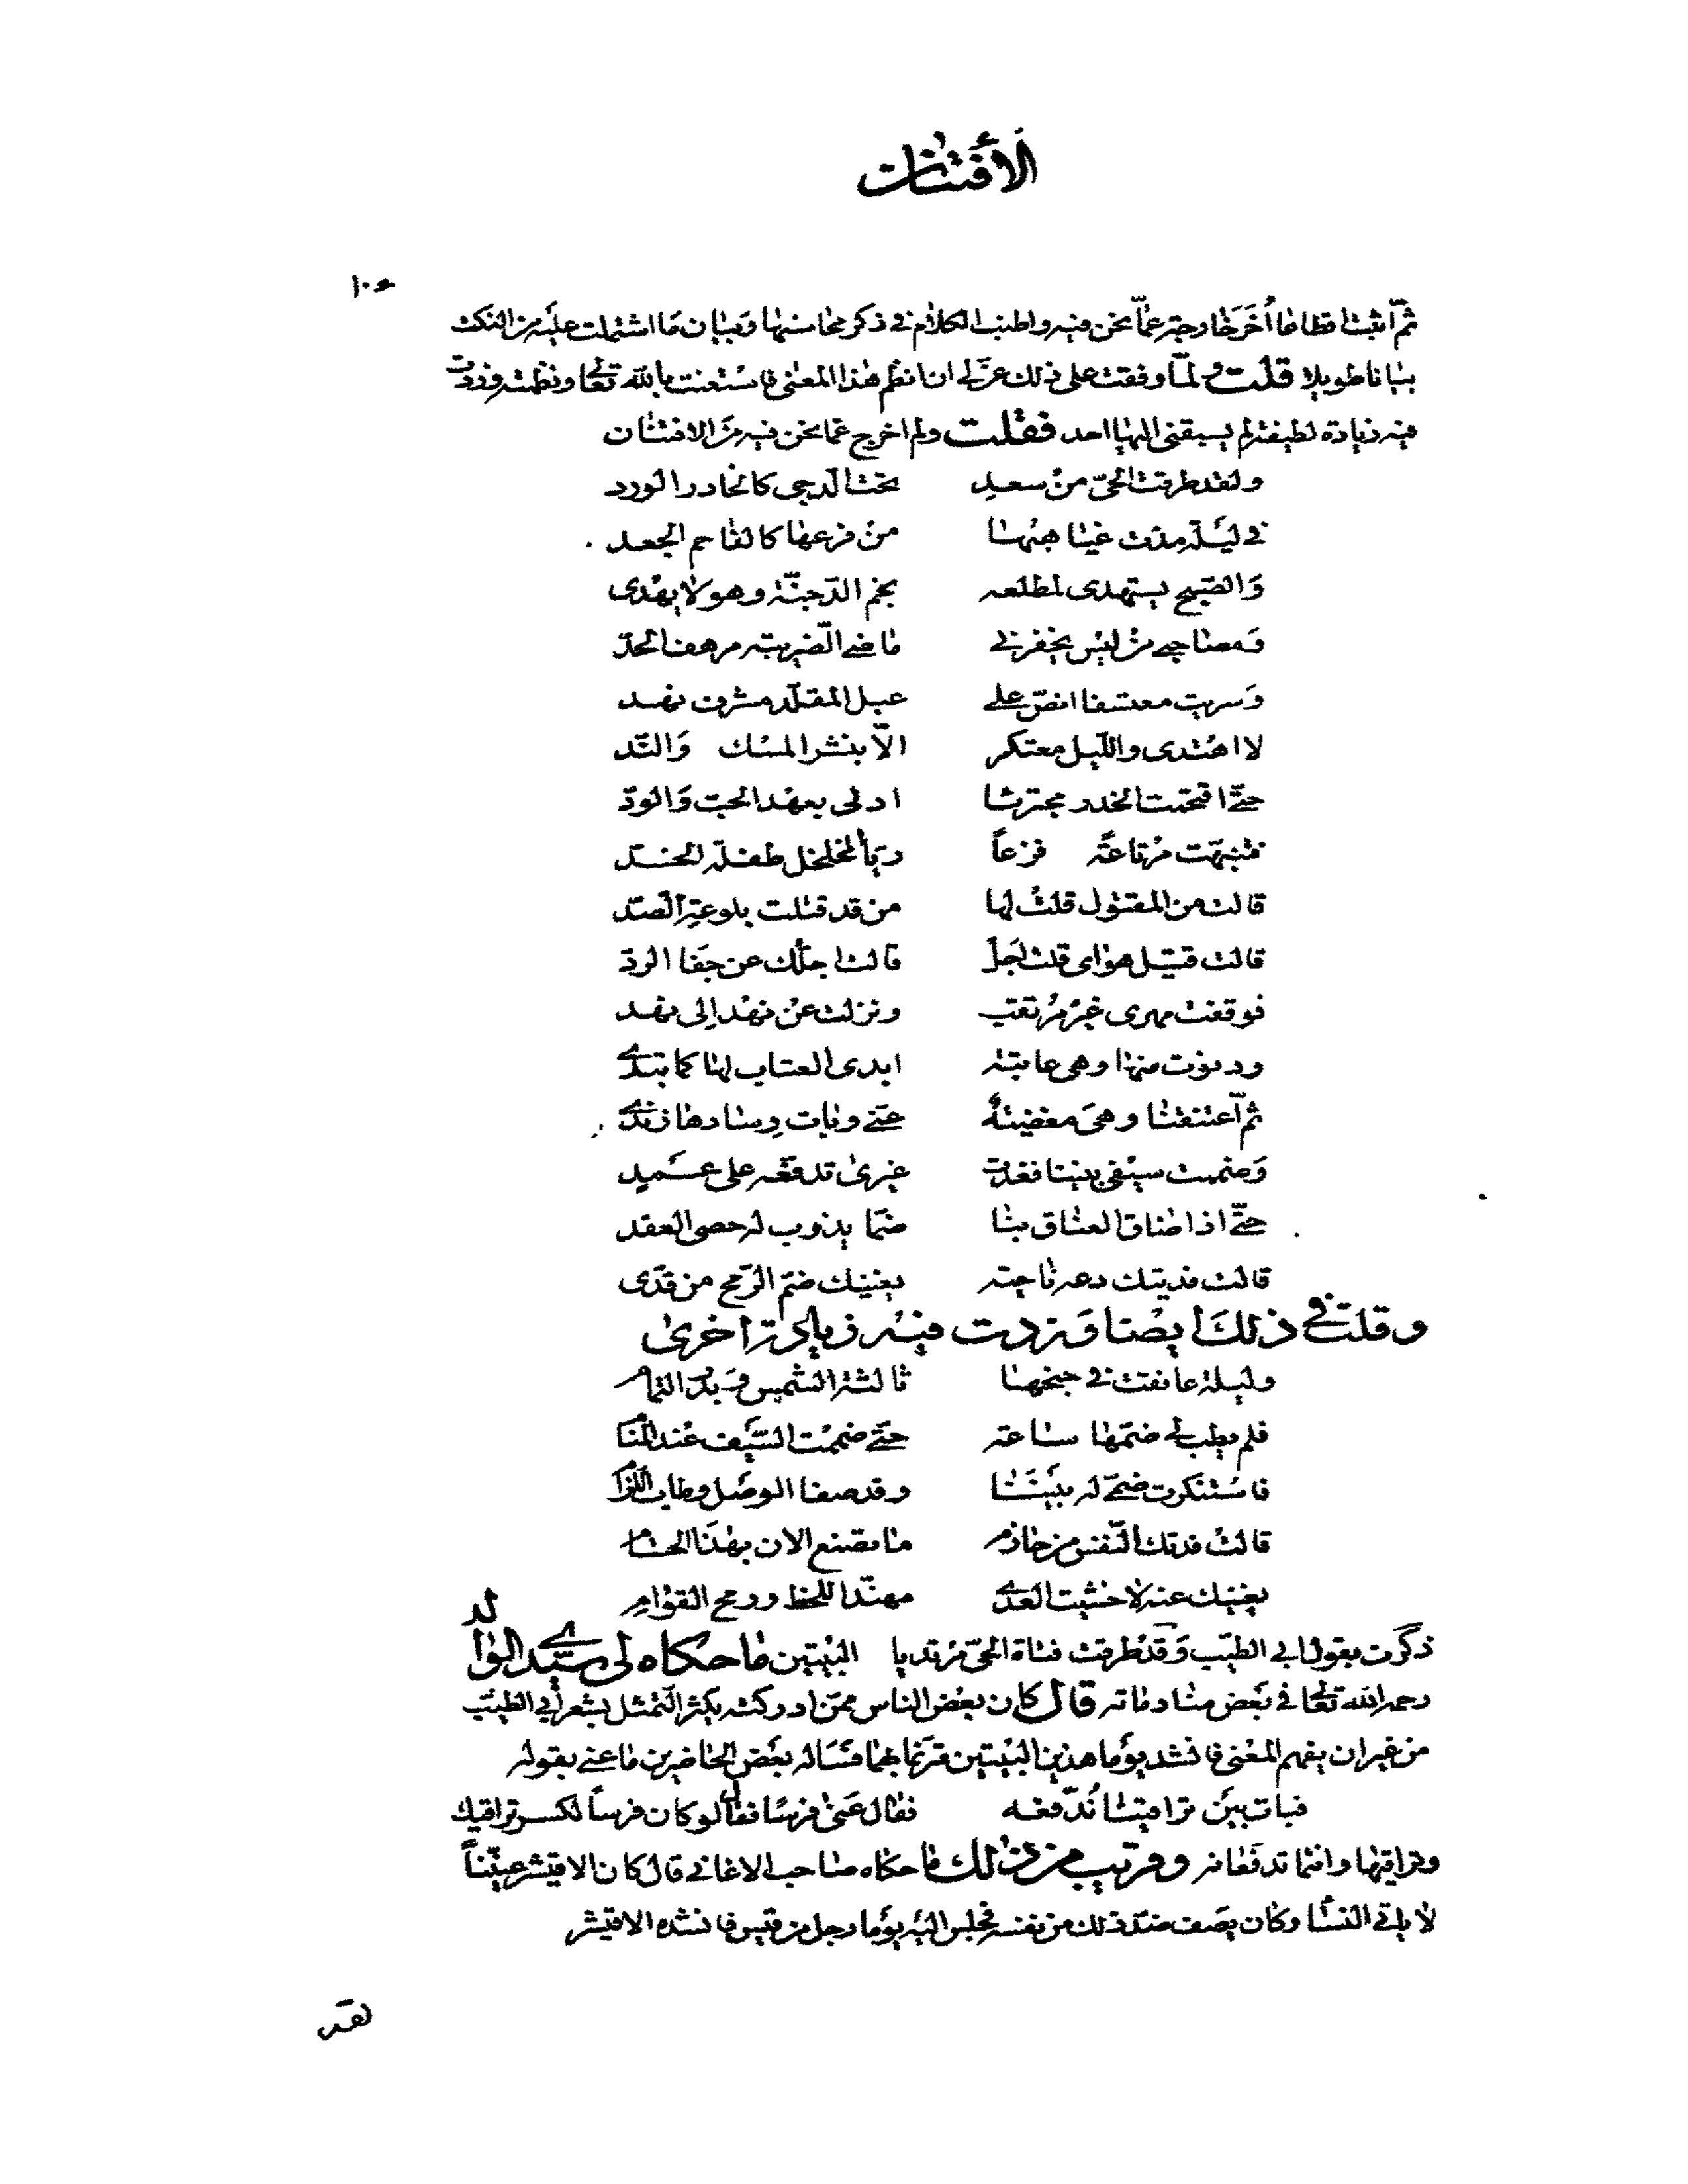 الأفتنان
ثمّ اثبت قطاعا أُخَر خارجة عمّا نحن فيه واطنب الكلام في ذكر محاسنها وبيان ما اشتملت عليه من النكت
بيانا طويلا قلت ولمّا وقفت على ذلك عنّ لي ان انظم هذا المعنى فاستعنت بالله تعالى ونظمته وزدت
فيه زيادة لطيفة لم يسبقني اليها احد فقلت ولم اخرج عما نحن فيه من الافتنان
ولقد طرقت الحيّ من سعد تحت الدجى كالخادر الورد
في ليلة مدّت غياهبها من فرعها كالفاحم الجعد
والصبح يستهدى لمطلعه نجم الدجنّة وهو لا يهدى
ومصاحبي من ليس يخفرني ماضي الضريبة مرهف الحدّ
وسريت معتسفا انصّ على عبل المقلّد مشرف نهد
لا اهتدى والليل معتكر الّا بنشر المسك والندّ
حتّى اقتحمت الخدر مجترئا ادلى بعهد الحب والودّ
فتنبهت مرتاعة فزعاً ريّا المخلخل طفلة الخدّ
قالت من المقتول قلت لها من قد قتلت بلوعة الصدّ
قالت قتيل هواى قلت اجلْ قالت اجلّك عن جفا الردّ
فوقفت مهرى غير مرتقب ونزلت عن نهد إلى نهد
ودنوت منها وهى عاتبة ابدى العتاب لها كما تبدي
ثمّ اعتنقنا وهى مغضية عنّي وبات وسادها زندي
وضممت سيفى بيننا فغدت غيرى تدفّعه على عمد
حتّى اذا ضاق العناق بنا ضمّا يذوب له حصى العقد
قالت فديتك دعه ناحية يغنيك ضمّ الرمح من قدّى
وقلت في ذلك ايضا وزدت فيه زيادة اخرى
وليلة عانقت في جنحها ثالثة الشمس وبدر التمام
فلم يطب لي ضمّها ساعة حتّى ضممت السيف عند المنام
فاستنكرت ضمّي له بيننا وقد صفا الوصل وطاب اللزام
قالت فدتك النفس من حازم ما تصنع الان بهذا الحسام
يغنيك عنه لا خشيت العدى مهنّد اللحظ ورمح القوام
ذكّرت بقول ابي الطيّب وقد طرقت فتاة الحيّ مرتديا البيتين ما حكاه لى سيّدي الوالد
رحمه الله تعالى في بعض منادماته قال كان بعض الناس ممّن ادركته يكثر التمثل بشعر أبي الطيّب
من غير ان يفهم المعنى فانشد يوما هذين البيتين مترنّما بهما فساله بعض الحاضرين ما عنى بقوله
فبات بين تراقينا نُدفّعه فقال عنى فرسًا فقال لو كان فرساً لكسر تراقيك
وتراقيها وانما تدفّعانه وقريب من ذلك ما حكاه صاحب الاغاني قال كان الاقيشر عنّيناً
لا ياتي النسا وكان يصف ضدّ ذلك من نفسه فجلس اليه يوما رجل من قيس فانشده الاقيشر